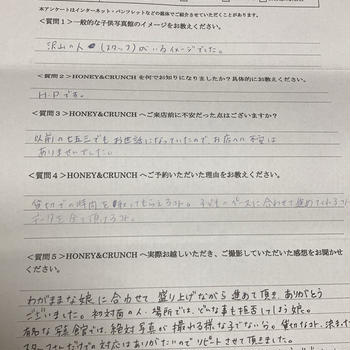 本アンケートはインターネット・パンフレットなどの媒体でご紹介させていただくことがあります。
＜質問１＞一般的な子供写真館のイメージをお教えください。
沢山の人(スタッフ)がいるイメージでした。
＜質問２＞HONEY&CRUNCH を何でお知りになりましたか？具体的にお教えください。
H.Pです。
＜質問３＞HONEY&CRUNCH へご来店前に不安だった点はございますか？
以前の七五三でもお世話になっていたのでお店への不安は
ありませんでした。
＜質問４＞HONEY&CRUNCH へご予約いただいた理由をお教えください。
貸切での時間を取ってもらえるコト。子どものペースに合わせて進めてくれるコト
データを全て頂けるコト。
＜質問５＞HONEY&CRUNCH へ実際お越しいただき、ご撮影していただいた感想をお聞かせ
ください。
わがままな娘に合わせて盛り上げながら進めて頂き、ありがとう
ございました。初対面の人・場所では、どんな事も拒否してしまう娘。
有名な写真館では、絶対写真が撮れる様な子でない分。貸切なコト、決まった
スタッフさんだけでの対応はありがたいのでリピートさせて頂きました。